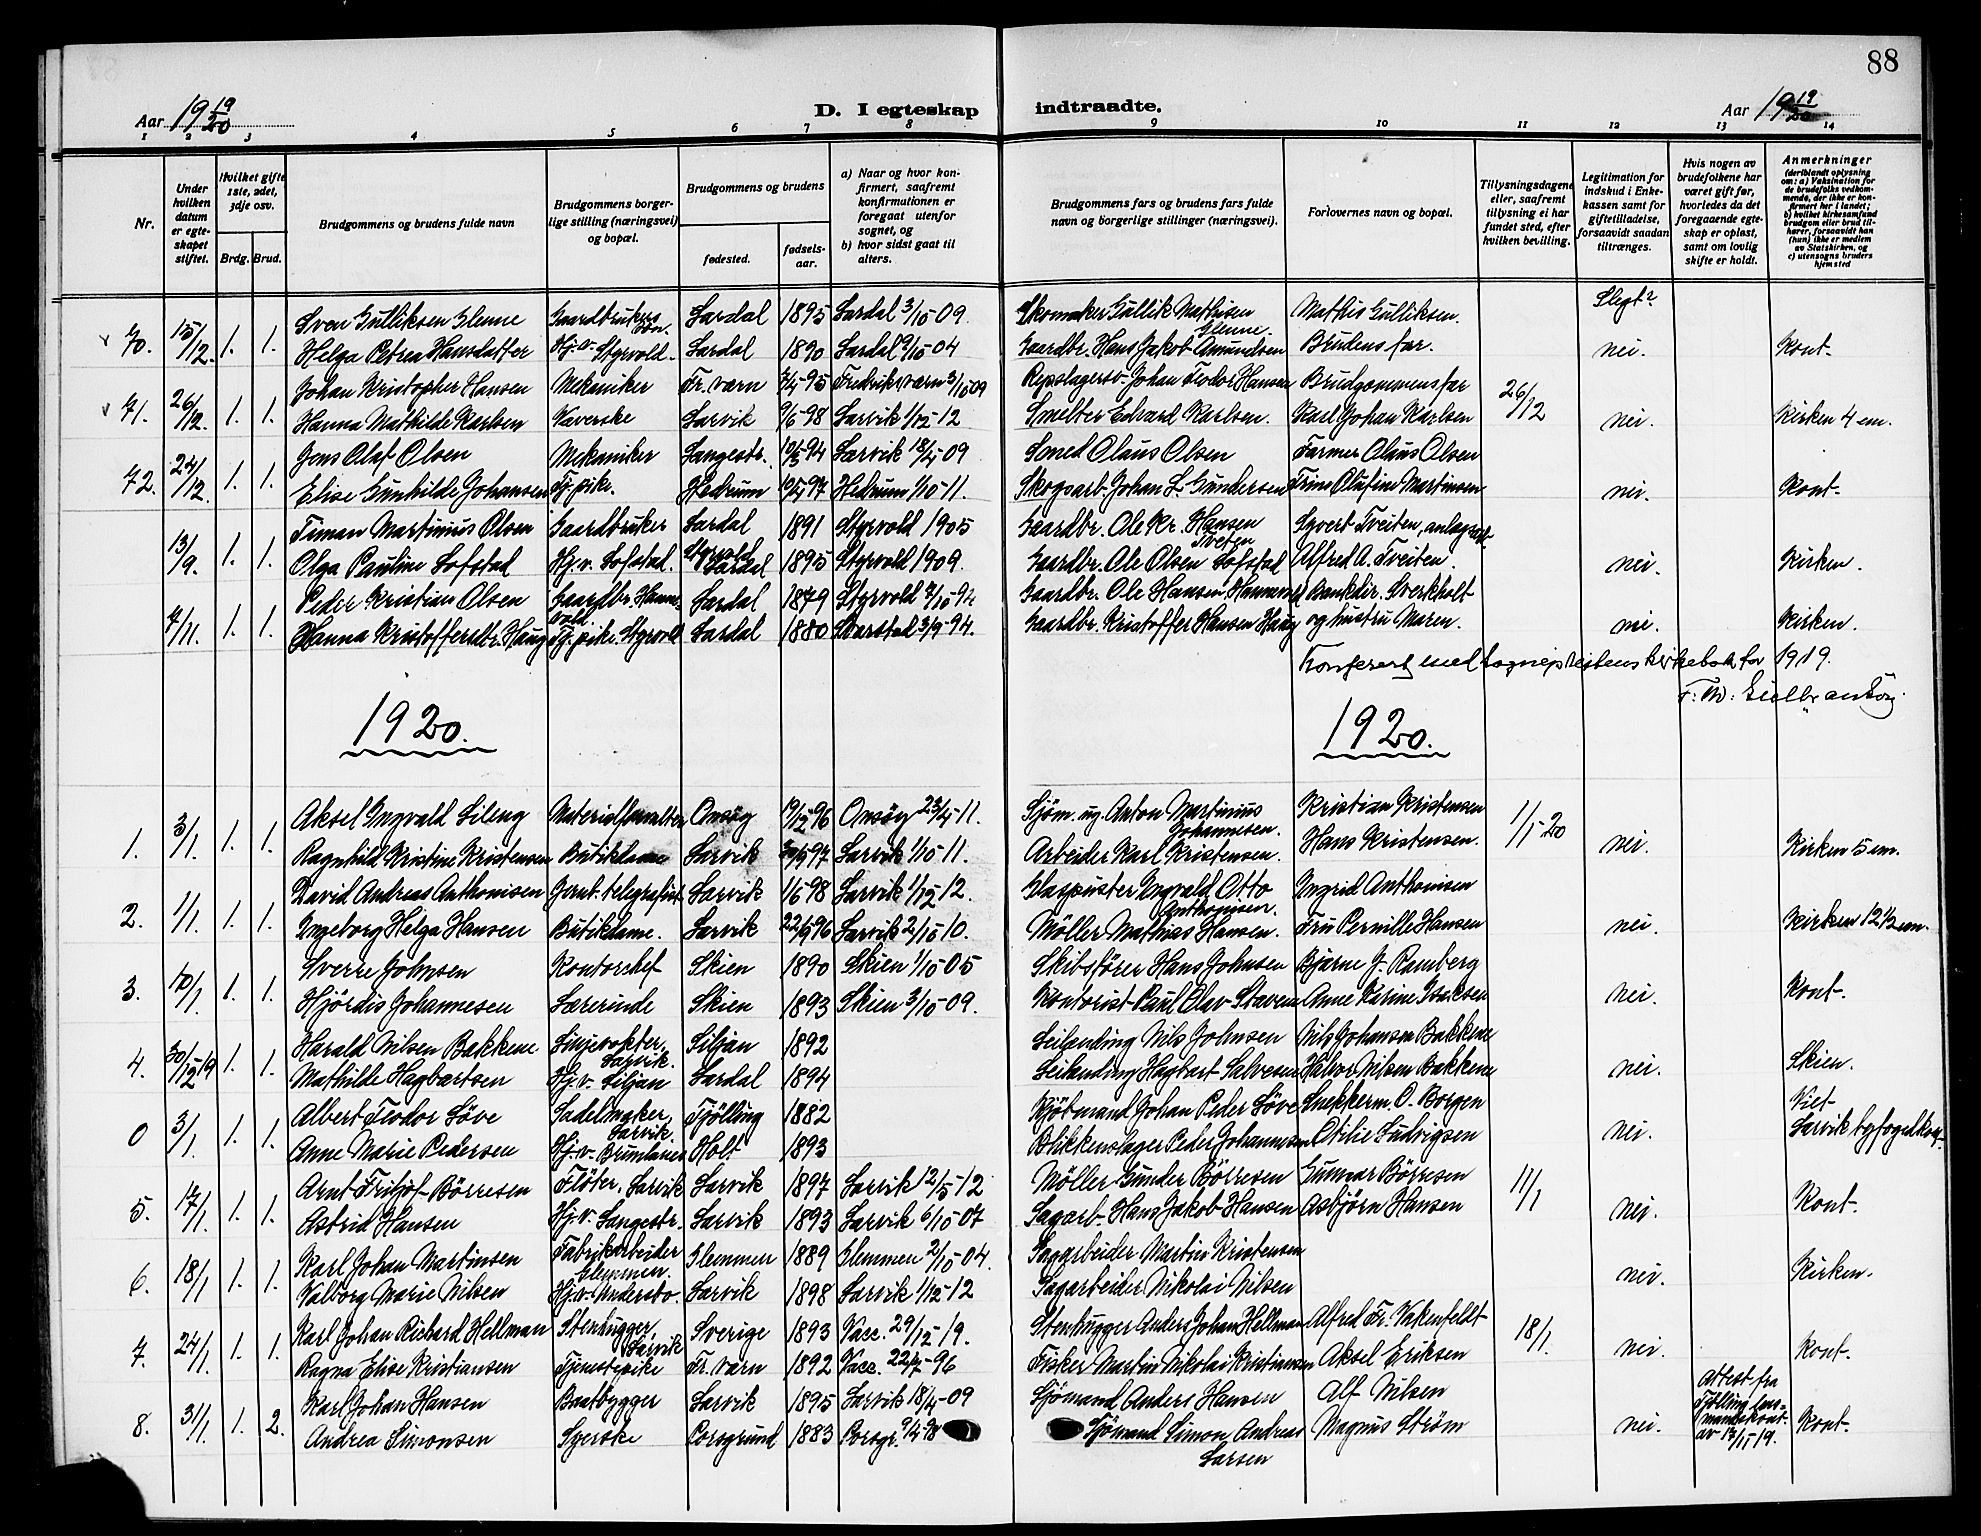 88
Aar 19 19/20
D. I egteskap indtraadte.
Aar 19 19/20
1 2 3 4 5 6 7 8 9 10 11 12 13 14
Nr.
Under hvilken datum er egteskapet stiftet.
Hvilket gifte 1ste, 2det, 3dje osv.
Brdg. Brud.
Brudgommens og brudens fulde navn
Brudgommens borgerlige stilling (næringsvei) og bopæl.
Brudgommens og brudens
fødested.
fødselsaar.
a) Naar og hvor konfirmert, saafremt konfirmationen er foregaat utenfor sognet, og
b) hvor sidst gaat til alters.
Brudgommens fars og brudens fars fulde navn og borgerlige stillinger (næringsvei).
Forlovernes navn og bopæl.
Tillysningsdagene eller, saafremt tillysning ei har fundet sted, efter hvilken bevilling.
Legitimation for indskud i Enkekassen samt for giftetilladelse, forsaavidt saadan tiltrænges.
Hvis nogen av brudefolkene har været gift før, hvorledes da det foregaaende egteskap er opløst, samt om lovlig skifte er holdt.
Anmerkninger (deriblandt oplysning om: a) Vaksination for de brudefolks vedkommende, der ikke er konfirmert her i landet; b) hvilket kirkesamfund brudgom eller brud tilhører, forsaavidt han (hun) ikke er medlem av Statskirken, og c) utensogns bruders hjemsted
Sven Gulliksen Glenne Gaardbrukers søn. Lardal 1895 Lardal 3/10 09. Skomaker Gullik Mathisen Glenne. Mathis Gulliksen. Slegt?
70. 15/12. 1. 1. Helga Petrea Hansdatter Hj. v. Styrvold. Lardal 1890 Lardal 9/10-04 Gaardbr. Hans Jakob Amundsen Brudens far. nei. Kont.
Johan Kristopher Hansen Mekaniker Fr. værn 7/4-95 Fredriksværn 3/10 09 Repslagersv. Johan Teodor Hansen Brudgommens far 26/12
71. 26/12. 1. 1. Hanna Mathilde Karlsen Væverske Larvik 9/6-98 Larvik 1/12-12 Smelter Edvard Karlsen. Karl Johan Karlsen nei. Kirken 4 em.
Jens Olaf Olsen Mekaniker Langestr. 10/5-94 Larvik 18/4-09 Smed Olaus Olsen Farmer Olaus Olsen
72. 24/12. 1. 1. Elise Gunhilde Johansen Tj. pike. Hedrum 10/4-97 Hedrum 1/10-11. Skogsarb. Johan L. Gundersen Trine Olufine Martinsen nei. Kont.
Timan Martinius Olsen Gaardbruker Lardal 1891 Styrvold 1905 Gaardbr. Ole Kr. Hansen Tveten Syvert Tveiten,
13/9. 1. 1. Olga Pauline Lofstad Hj. v. Lofstad. Styrvold Lardal 1895 Styrvold 1909. Gaardbr. Ole Olsen Lofstad Alfred A. Tveiten. nei. Kirken.
Peder Kristian Olsen Gaardbr. Hannevold Lardal 1879 Styrvold 7/10-94 Gaardbr. Ole Hansen Hannevold Bankdir. Sverkholt
7/11. 1. 1. Hanna Kristoffersdtr. Haug Tj. pike. Styrvold Lardal 1880 Svarstad 3/9-94. Gaardbr. Kristoffer Hansen Haug og hustru Maren. nei. Kirken.
Konferert med sogneprestens kirkebok for 1919.
1920. 1920.
Aksel Ingvald Lileng Materialforvalter Onsøy 19/12 96 Onsøy 23/4-11. Sjøm. ug. Anton Martinius Johannesen. Kristian Kristensen 1/1-20
1. 3/1. 1. 1. Ragnhild Kristine Kristensen Butikdame Larvik 97 Larvik 1/10-11. Arbeider Karl Kristensen. Hans Kristensen. nei. Kirken 5 em.
David Andreas Anthonisen Jernb. telegrafist Larvik 1/6-98 Larvik 1/12-12. Glaspuster Ingvald Otto Anthonisen. Ingrid Anthonisen
2. 1/1. 1. 1. Ingeborg Helga Hansen Butikdame. Larvik 22/9 96 Larvik 2/10-10. Møller Mathias Hansen. Fru Pernille Hansen nei. Kirken 12 1/2 em.
Sverre Johnsen Kontorchef Skien 1890 Skien 1/10-05 Skibsfører Hans Johnsen Bjarne J. Ramberg
3. 10/1. 1. 1. Hjørdis Johannesen Lærerinde Skien 1893 Skien 3/10-09. Kontorist Paul Olav Staven Anne Karine Isaksen nei. Kont.
Harald Nilsen Bakkene Linjevokter, Larvik. Siljan 1892 Leilending Nils Johnsen Nils Johansen Bakkene
4. 30/12-19 1. 1. Mathilde Hagbartsen Hj. v. Siljan Lardal 1894 Leilending Hagbart Salvesen Halvor Nilsen Bakkene nei. Skien.
Albert Teodor Løve Sadelmaker, Larvik. Tjølling 1882 Kjøbmand Johan Peder Løve Snekkerm. O. Borgen Viet
0 3/1. 1. 1. Anne Marie Pedersen Hj. v. Brunlanes Holt 1893 Blikkenslager Peder Johannesen Otilie Ludvigsen nei. Larvik byfogedkont.
Arnt Fritjof Børresen Fløter, Larvik Larvik 1897 Larvik 12/5-12 Møller Gunder Børresen Gunnar Børresen 11/1
5. 17/1. 1. 1. Astrid Hansen Hj. v. Langestr. Larvik 1893 Larvik 6/10-07 Sagarb. Hans Jakob Hansen Asbjørn Hansen nei. Kont.
Karl Johan Martinsen Fabrikarbeider Glemmen. Glemmen 1889 Glemmen 2/10-04. Sagarbeider Martin Kristensen
6. 18/1 1. 1. Valborg Marie Nilsen Hj. v. Undersbo. Larvik 1898 Larvik 1/12-12 Sagarbeider Nikolai Nilsen nei. Kirken.
Karl Johan Richard Hellman Stenhugger, Larvik Sverige 1893 Vacc. 29/12-19. Stenhugger Anders Johan Hellman Alfred Fr. Vakenfeldt 18/1.
7. 24/1. 1. 1. Ragna Elise Kristiansen Tjenestepike Fr. værn 1892 Vacc. 22/7-96 Fisker Martin Nikolai Kristiansen Aksel Eriksen nei. Kont.
Karl Johan Hansen Baatbygger Larvik 1895 Larvik 18/4-09 Sjømand Anders Hansen Alf Nilsen Attest fra Tjølling lensmandskont. av 13/11-19.
8. 31/1. 1. 2. Andrea Simonsen Syerske Porsgrund 1883 Porsgr. 9/4-98 Sjømand Simon Andreas Larsen Magnus Strøm nei. Kont.